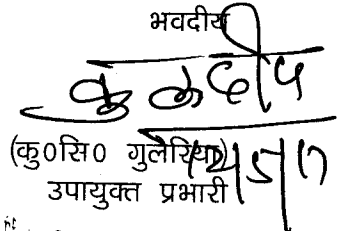 भवदीय
कुलदीप
(कु०सि० गुलेरिया)
उपायुक्त प्रभारी